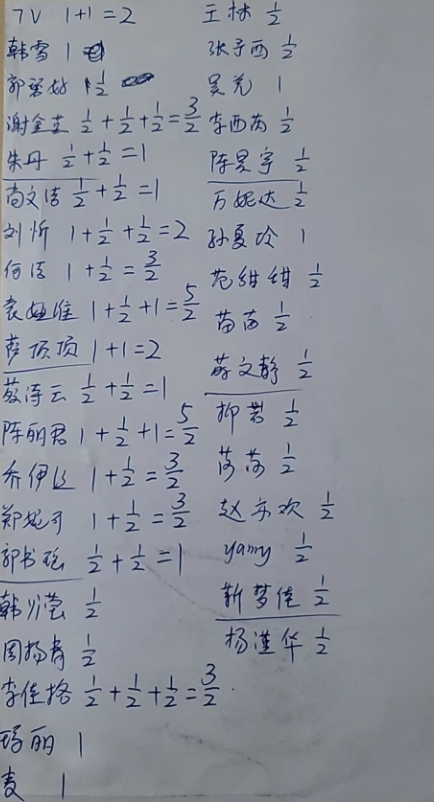 7V 1+1=2
韩雪 1
郭碧婷 1 1/2
谢金燕 1/2+1/2+1/2=3/2
朱丹 1/2+1/2=1
尚文婕 1/2+1/2=1
刘忻 1+1/2+1/2=2
何洁 1+1/2=3/2
袁娅维 1+1/2+1=5/2
萨顶顶 1+1=2
蔡诗云 1/2+1/2=1
陈丽君 1+1/2+1=5/2
乔伊丝 1+1/2=3/2
郑妮可 1+1/2=3/2
郭书瑶 1/2+1/2=1
韩 莹 1/2
周扬青 1/2
李佳格 1/2+1/2+1/2=3/2
玛丽 1
麦 1
王林 1/2
张予西 1/2
吴克 1
李西芮 1/2
陈昊宇 1/2
万妮达 1/2
孙夏玲 1
范绀绀 1/2
苗苗 1/2
文静 1/2
柳岩 1/2
莎莎 1/2
赵 欢 1/2
yamy 1/2
靳梦佳 1/2
杨谨华 1/2